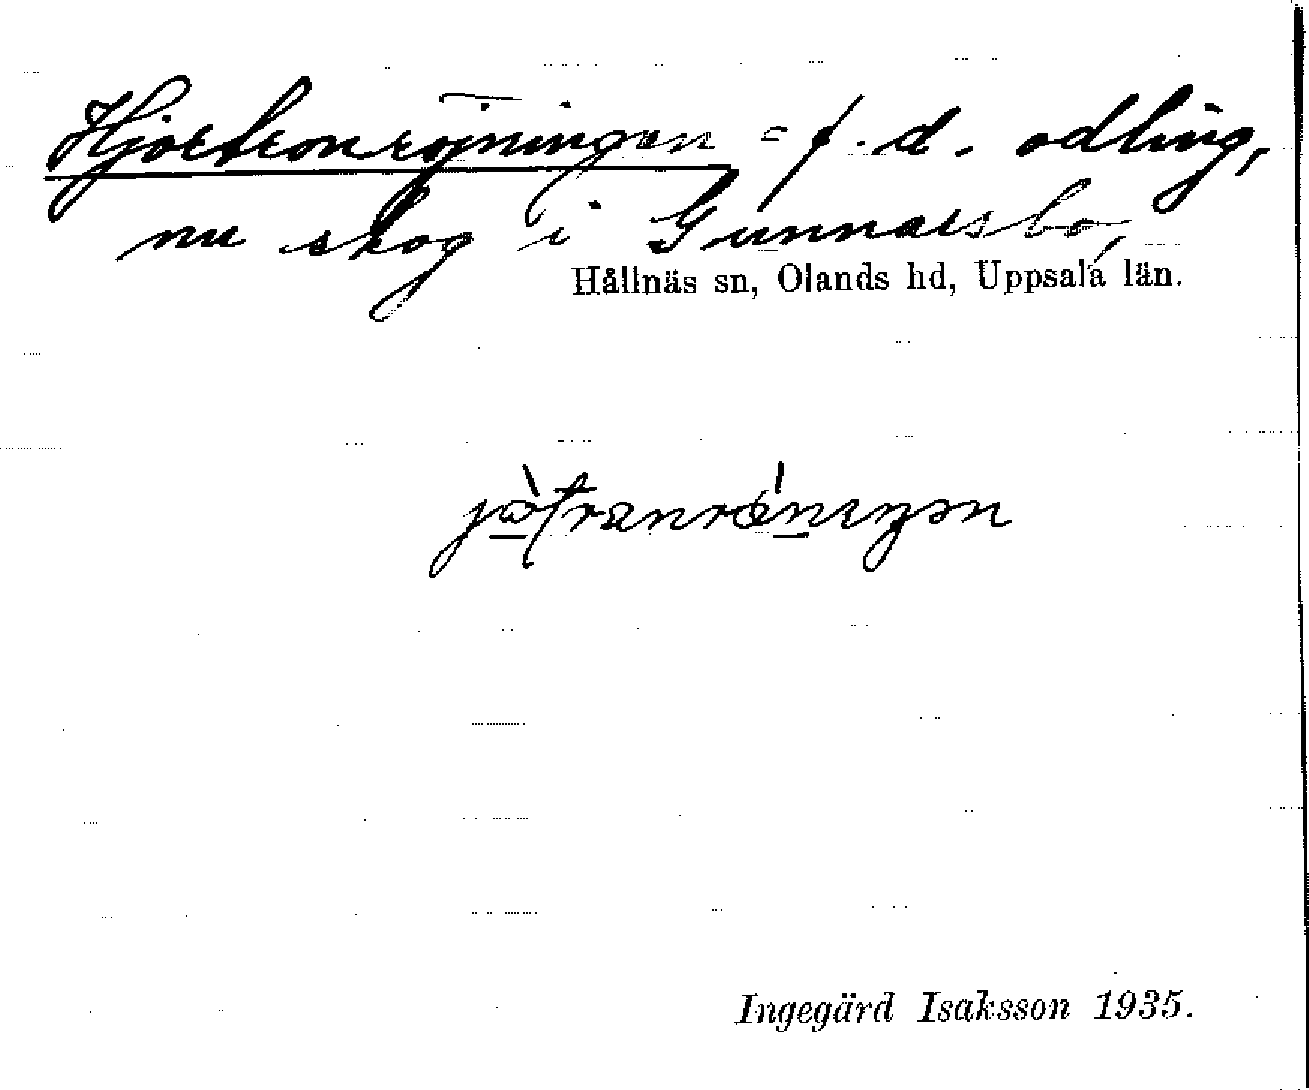 Hjortronröjningen = f. d. odling,
nu skog i Gunnarsbo,
Hållnäs sn, Olands hd, Uppsala län.
Ingegärd Isaksson 1935.